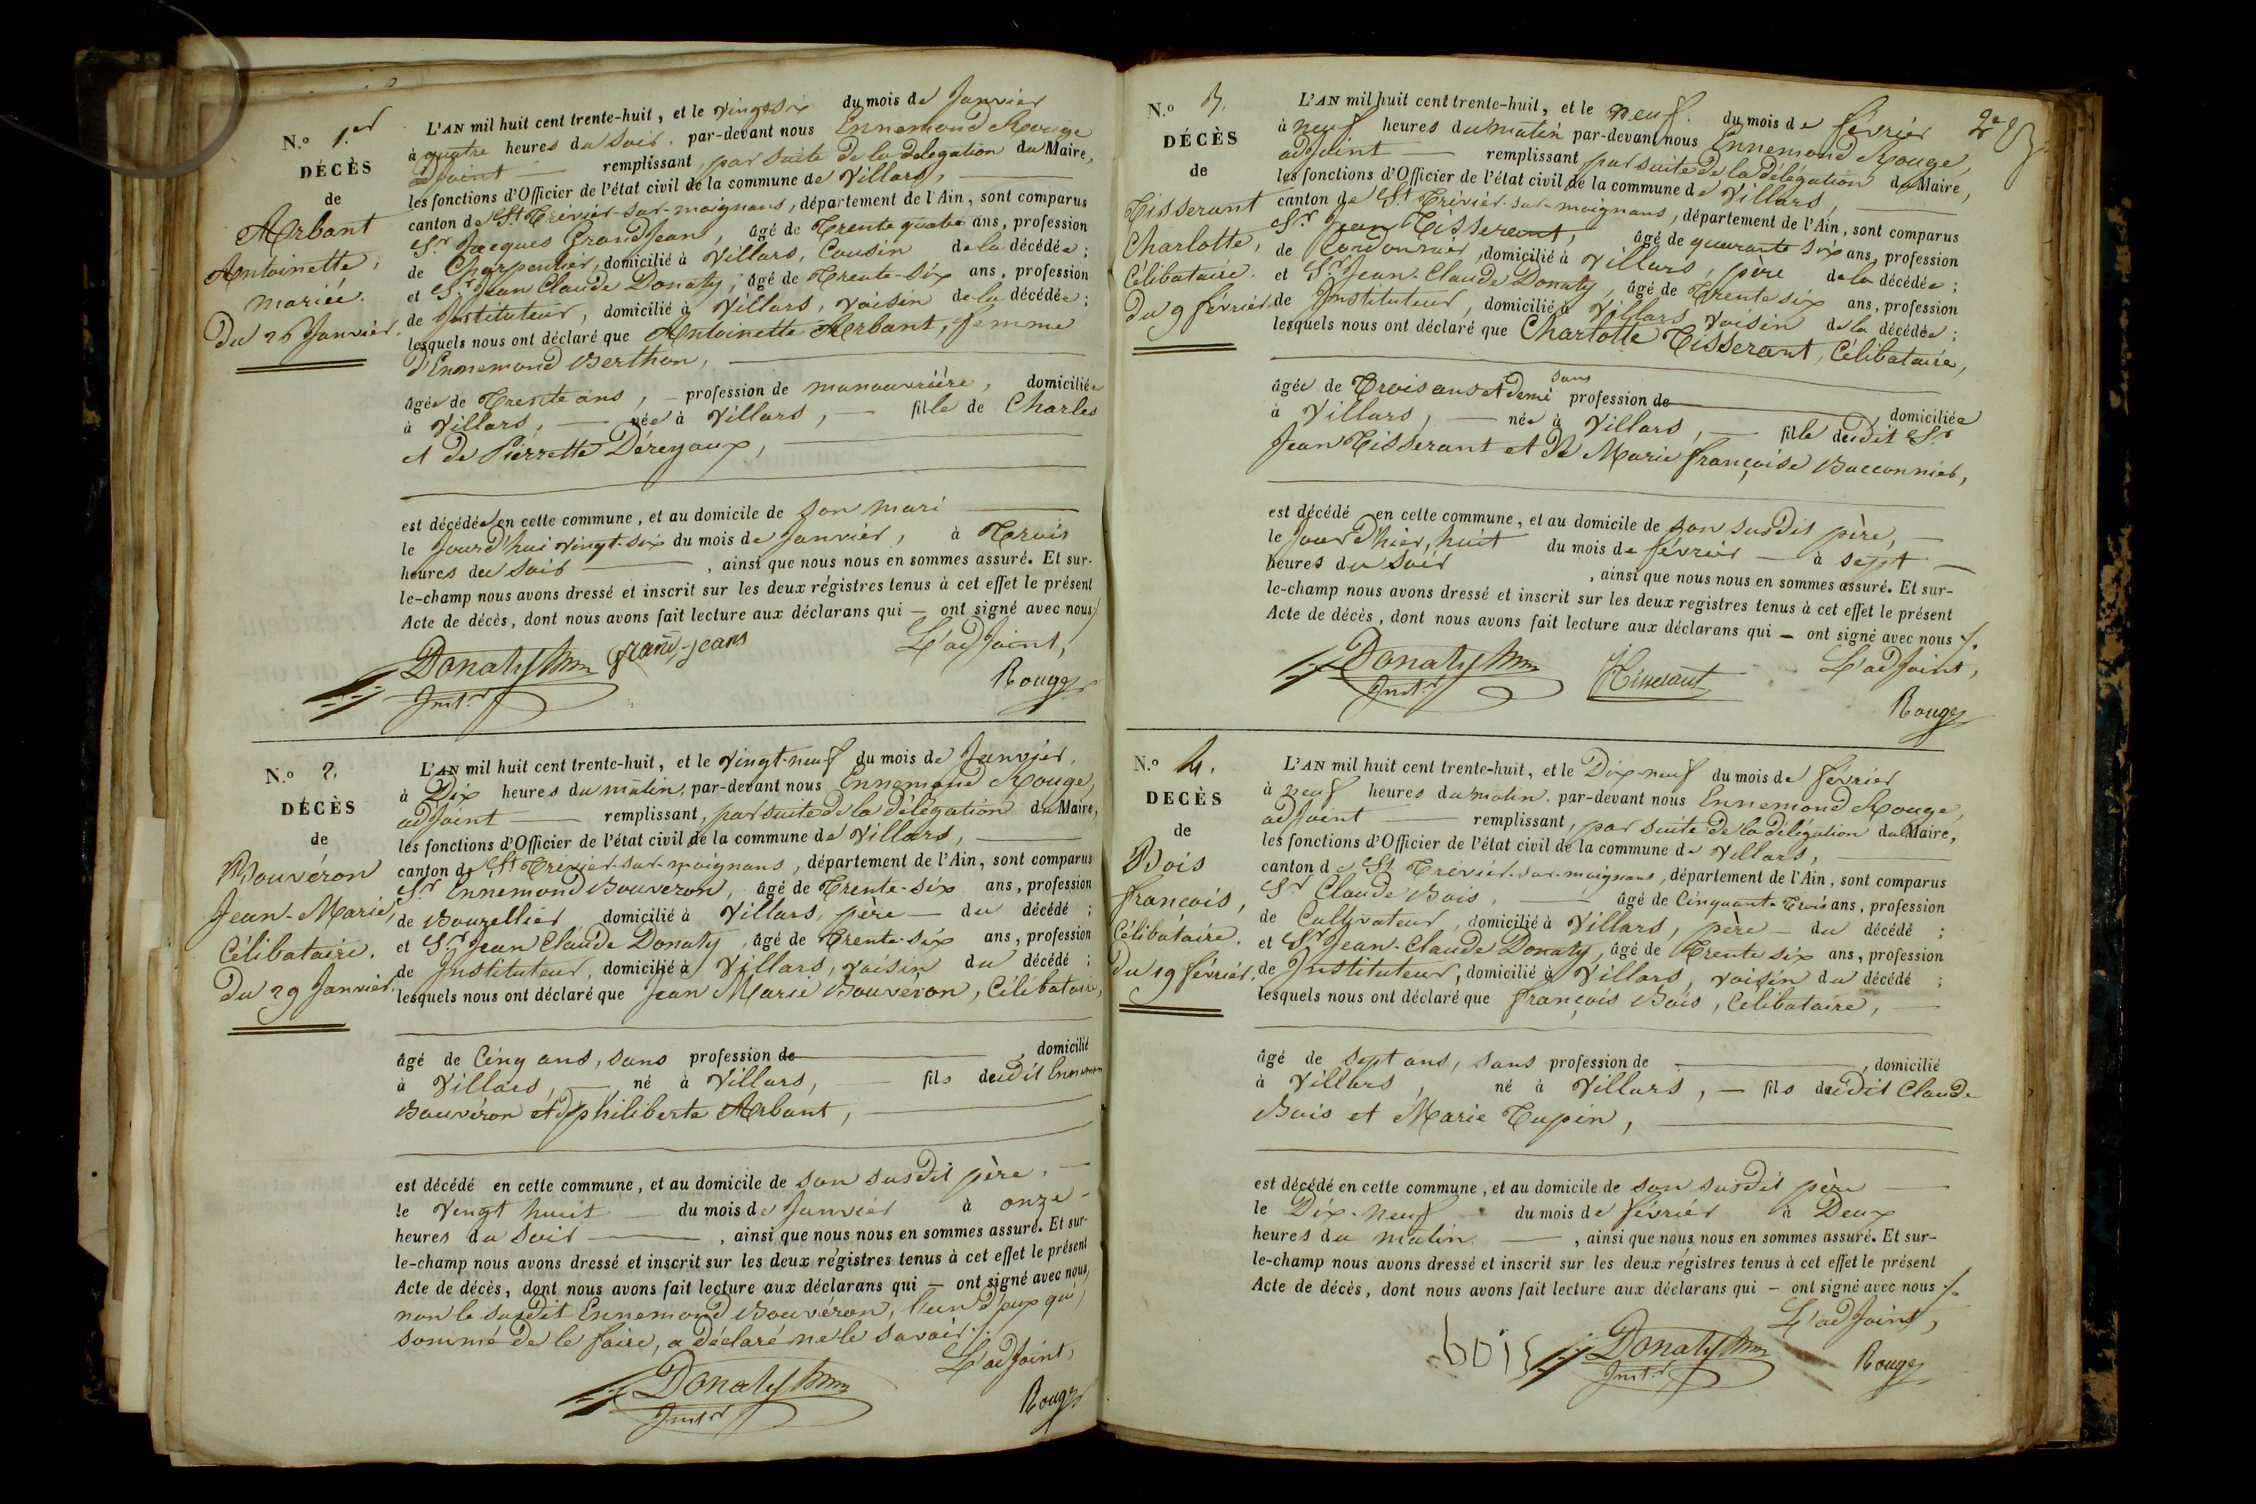 N.º 1.er
DÉCÈS
de
Arbant
Antoinette,
mariée.
Du 26 Janvier.
L'AN mil huit cent trente-huit, et le vingt-six du mois de Janvier
à quatre heures du soir, par-devant nous Ennemond Rouge
adjoint — remplissant, par suite de la délégation du Maire,
les fonctions d'Officier de l'état civil de la commune de Villars,
canton de St Trivier-sur-moignans, département de l'Ain, sont comparus
Sr. Jacques Grandjean, âgé de Trente quatre ans, profession
de Charpentier, domicilié à Villars, Cousin de la décédée;
et Sr. Jean Claude Donaty, âgé de Trente-six ans, profession
de Instituteur, domicilié à Villars, voisin de la décédée;
lesquels nous ont déclaré que Antoinette Arbant, femme
d'Ennemond Berthon,
âgée de Trente ans, — profession de manouvrière, domiciliée
à Villars, — née à Villars, — fille de Charles
et de Pierrette Déreyaux,
est décédée en cette commune, et au domicile de son mari
le Jourd'hui vingt-six du mois de Janvier, à Trois
heures du soir —, ainsi que nous nous en sommes assuré. Et sur-
le-champ nous avons dressé et inscrit sur les deux régistres tenus à cet effet le présent
Acte de décès, dont nous avons fait lecture aux déclarans qui — ont signé avec nous
Donaty grand-jean L'adjoint,
Instr Rouge
N.º 2.
DÉCÈS
de
Bouvéron
Jean-Marie,
Célibataire.
Du 29 Janvier.
L'AN mil huit cent trente-huit, et le vingt-neuf du mois de Janvier,
à Dix heures du matin, par-devant nous Ennemond Rouge,
adjoint — remplissant, par suite de la délégation du Maire,
les fonctions d'Officier de l'état civil de la commune de Villars,
canton de St Trivier-sur-moignans, département de l'Ain, sont comparus
Sr. Ennemond Bouveron, âgé de Trente-six ans, profession
de Bourellier domicilié à Villars, père — du décédé;
et Sr. Jean Claude Donaty, âgé de Trente-six ans, profession
de Instituteur, domicilié à Villars, voisin du décédé;
lesquels nous ont déclaré que Jean Marie Bouveron, Célibataire,
âgé de Cinq ans, sans profession de —, domicilié
à Villars, — né à Villars, — fils dudit Ennemond
Bouvéron et de philiberte Arbant,
est décédé en cette commune, et au domicile de son susdit père.
le Vingt huit — du mois de Janvier à onze
heures du soir —, ainsi que nous nous en sommes assuré. Et sur-
le-champ nous avons dressé et inscrit sur les deux régistres tenus à cet effet le présent
Acte de décès, dont nous avons fait lecture aux déclarans qui — ont signé avec nous,
non le susdit Ennemond Bouvéron, l'un d'eux qui,
sommé de le faire, a déclaré ne le savoir.
L'adjoint,
Donaty
Instr Rouge
2e
N.º 3.
DÉCÈS
de
Tisserant
Charlotte,
Célibataire.
Du 9 février
L'AN mil huit cent trente-huit, et le neuf. du mois de février
à neuf heures du matin par-devant nous Ennemond Rouge,
adjoint — remplissant par suite de la délégation du Maire,
les fonctions d'Officier de l'état civil de la commune de Villars,
canton de St. Trivier-sur-moignans, département de l'Ain, sont comparus
Sr. Jean Tisserant, âgé de quarante six ans, profession
de Cordonnier, domicilié à Villars, père de la décédée;
et Sr. Jean-Claude Donaty, âgé de Trente six ans, profession
de Instituteur, domicilié à Villars voisin de la décédée;
lesquels nous ont déclaré que Charlotte Tisserant, Célibataire,
âgée de Trois ans et demi sans profession de —, domiciliée
à Villars, — née à Villars, — fille dudit Sr
Jean Tisserant et de Marie françoise Bacconnier,
est décédé en cette commune, et au domicile de son susdit père,
le Jour d'hier, huit du mois de février — à sept
heures du soir, ainsi que nous nous en sommes assuré. Et sur-
le-champ nous avons dressé et inscrit sur les deux registres tenus à cet effet le présent
Acte de décès, dont nous avons fait lecture aux déclarans qui — ont signé avec nous
Donaty Tisserant L'adjoint,
Instr Rouge
N.º 4.
DECÈS
de
Bois
françois,
Célibataire.
Du 19 février.
L'AN mil huit cent trente-huit, et le Dix-neuf du mois de février
à neuf heures du matin. par-devant nous Ennemond Rouge,
adjoint — remplissant, par suite de la délégation du Maire,
les fonctions d'Officier de l'état civil de la commune de Villars,
canton de St Trivier-sur-moignans, département de l'Ain, sont comparus
Sr Claude Bois, — âgé de Cinquante Trois ans, profession
de Cultivateur, domicilié à Villars, père — du décédé;
et Sr Jean-Claude Donaty, âgé de Trente six ans, profession
de Instituteur, domicilié à Villars, voisin du décédé;
lesquels nous ont déclaré que françois Bois, Célibataire,
âgé de sept ans, sans profession de —, domicilié
à Villars, né à Villars, — fils dudit Claude
Bois et Marie Tupin,
est décédé en cette commune, et au domicile de son susdit père
le Dix-neuf — du mois de février à Deux
heures du matin —, ainsi que nous nous en sommes assuré. Et sur-
le-champ nous avons dressé et inscrit sur les deux régistres tenus à cet effet le présent
Acte de décès, dont nous avons fait lecture aux déclarans qui — ont signé avec nous
L'adjoint,
bois Donaty
Instr Rouge